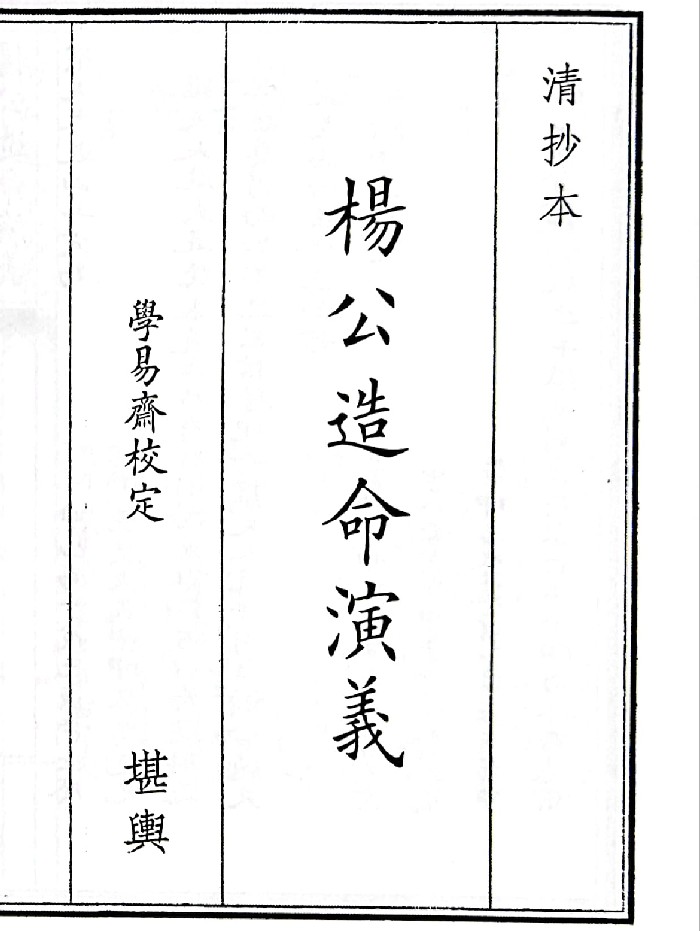 清抄本
楊公造命演義
學易齋校定
堪輿